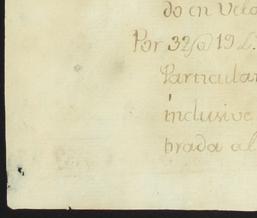 do en Velo
Por 32@ 19 L.
Particular
inclusive
brada al